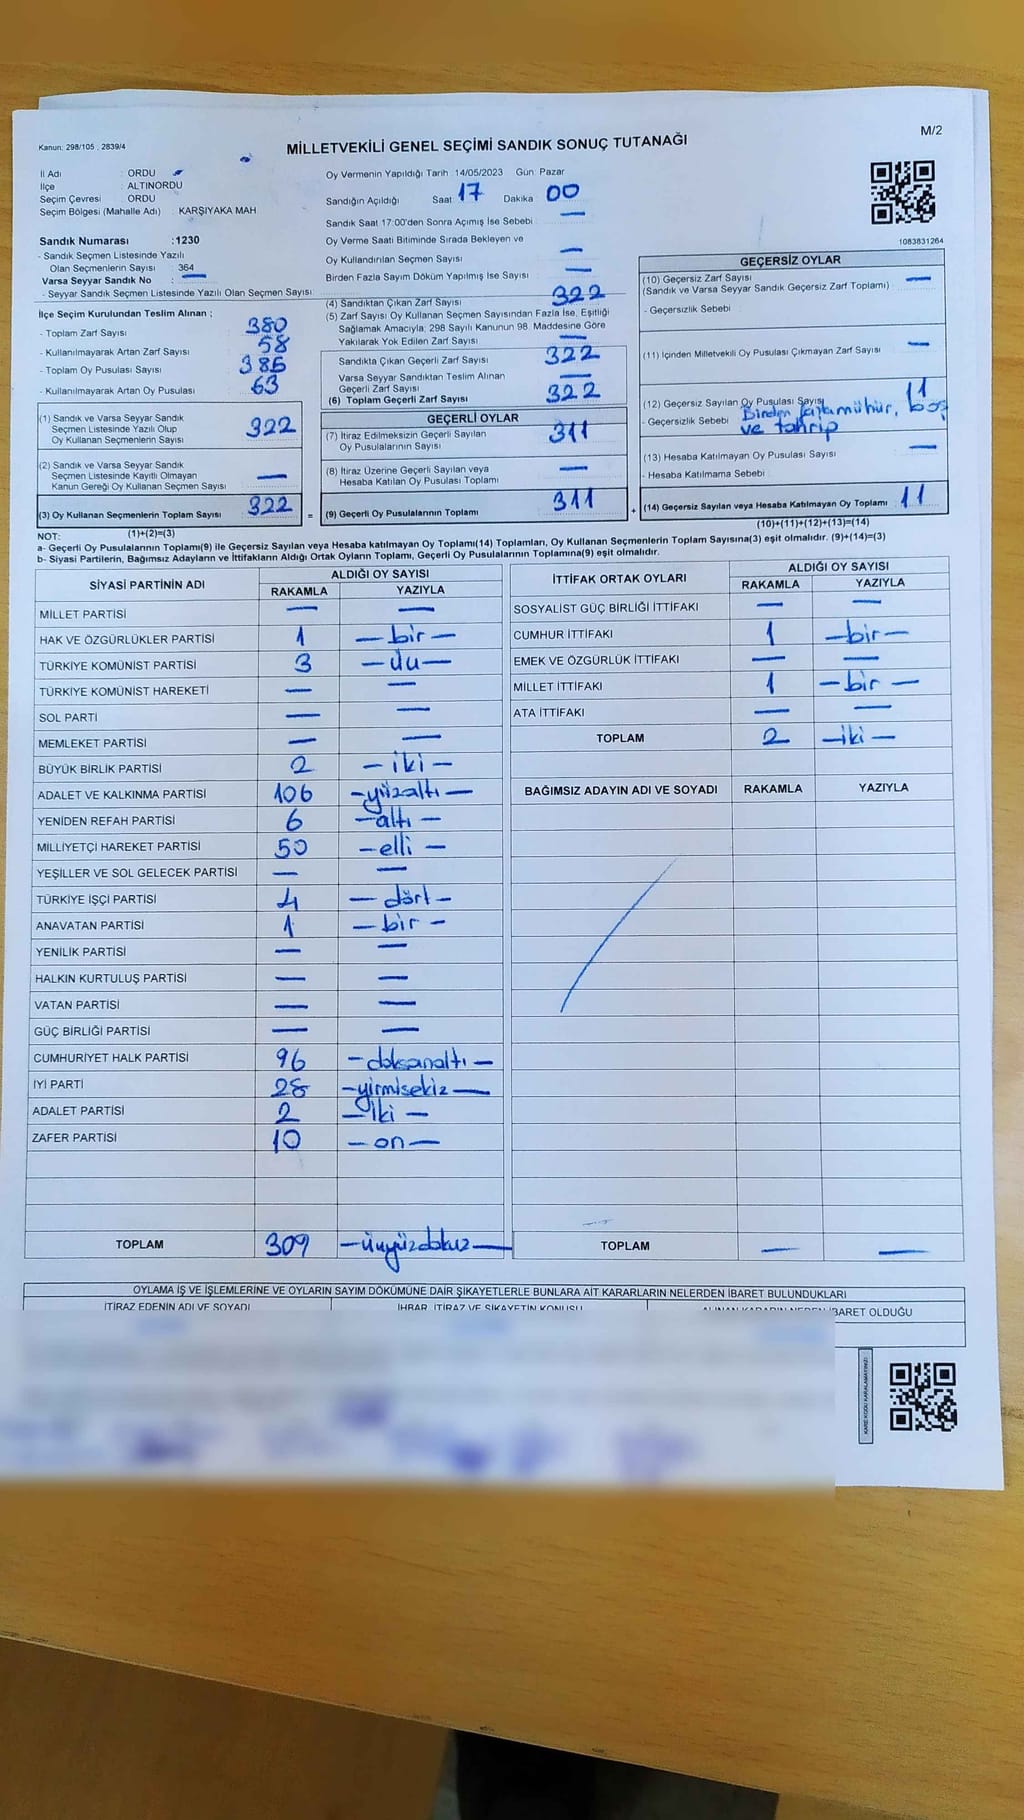 Kanun: 298/105 ; 2839/4
M/2
MİLLETVEKİLİ GENEL SEÇİMİ SANDIK SONUÇ TUTANAĞI
İl Adı : ORDU
İlçe : ALTINORDU
Seçim Çevresi : ORDU
Seçim Bölgesi (Mahalle Adı) : KARŞIYAKA MAH
Sandık Numarası :1230
- Sandık Seçmen Listesinde Yazılı
Olan Seçmenlerin Sayısı : 364
Varsa Seyyar Sandık No : —
- Seyyar Sandık Seçmen Listesinde Yazılı Olan Seçmen Sayısı:
İlçe Seçim Kurulundan Teslim Alınan ;
- Toplam Zarf Sayısı 380
- Kullanılmayarak Artan Zarf Sayısı 58
- Toplam Oy Pusulası Sayısı 385
- Kullanılmayarak Artan Oy Pusulası 63
(1) Sandık ve Varsa Seyyar Sandık
Seçmen Listesinde Yazılı Olup
Oy Kullanan Seçmenlerin Sayısı 322
(2) Sandık ve Varsa Seyyar Sandık
Seçmen Listesinde Kayıtlı Olmayan
Kanun Gereği Oy Kullanan Seçmen Sayısı —
(3) Oy Kullanan Seçmenlerin Toplam Sayısı 322
(1)+(2)=(3)
Oy Vermenin Yapıldığı Tarih : 14/05/2023 Gün: Pazar
Sandığın Açıldığı Saat 17 Dakika 00
Sandık Saat 17:00'den Sonra Açımış İse Sebebi : —
Oy Verme Saati Bitiminde Sırada Bekleyen ve
Oy Kullandırılan Seçmen Sayısı —
Birden Fazla Sayım Döküm Yapılmış İse Sayısı —
(4) Sandıktan Çıkan Zarf Sayısı 322
(5) Zarf Sayısı Oy Kullanan Seçmen Sayısından Fazla İse, Eşitliği
Sağlamak Amacıyla; 298 Sayılı Kanunun 98. Maddesine Göre
Yakılarak Yok Edilen Zarf Sayısı —
Sandıkta Çıkan Geçerli Zarf Sayısı 322
Varsa Seyyar Sandıktan Teslim Alınan
Geçerli Zarf Sayısı —
(6) Toplam Geçerli Zarf Sayısı 322
GEÇERLİ OYLAR
(7) İtiraz Edilmeksizin Geçerli Sayılan
Oy Pusulalarının Sayısı 311
(8) İtiraz Üzerine Geçerli Sayılan veya
Hesaba Katılan Oy Pusulası Toplamı —
= (9) Geçerli Oy Pusulalarının Toplamı 311
1083831264
GEÇERSİZ OYLAR
(10) Geçersiz Zarf Sayısı —
(Sandık ve Varsa Seyyar Sandık Geçersiz Zarf Toplamı)
- Geçersizlik Sebebi :
(11) İçinden Milletvekili Oy Pusulası Çıkmayan Zarf Sayısı —
(12) Geçersiz Sayılan Oy Pusulası Sayısı 11
- Geçersizlik Sebebi : Birden fazla mühür, boş
ve tahrip
(13) Hesaba Katılmayan Oy Pusulası Sayısı —
- Hesaba Katılmama Sebebi :
+ (14) Geçersiz Sayılan veya Hesaba Katılmayan Oy Toplamı 11
(10)+(11)+(12)+(13)=(14)
NOT:
a- Geçerli Oy Pusulalarının Toplamı(9) ile Geçersiz Sayılan veya Hesaba katılmayan Oy Toplamı(14) Toplamları, Oy Kullanan Seçmenlerin Toplam Sayısına(3) eşit olmalıdır. (9)+(14)=(3)
b- Siyasi Partilerin, Bağımsız Adayların ve İttifakların Aldığı Ortak Oyların Toplamı, Geçerli Oy Pusulalarının Toplamına(9) eşit olmalıdır.
SİYASİ PARTİNİN ADI ALDIĞI OY SAYISI
RAKAMLA YAZIYLA
MİLLET PARTİSİ — —
HAK VE ÖZGÜRLÜKLER PARTİSİ 1 — bir —
TÜRKİYE KOMÜNİST PARTİSİ 3 — üü —
TÜRKİYE KOMÜNİST HAREKETİ — —
SOL PARTİ — —
MEMLEKET PARTİSİ — —
BÜYÜK BİRLİK PARTİSİ 2 — iki —
ADALET VE KALKINMA PARTİSİ 106 — yüzaltı —
YENİDEN REFAH PARTİSİ 6 — altı —
MİLLİYETÇİ HAREKET PARTİSİ 50 — elli —
YEŞİLLER VE SOL GELECEK PARTİSİ — —
TÜRKİYE İŞÇİ PARTİSİ 4 — dört —
ANAVATAN PARTİSİ 1 — bir —
YENİLİK PARTİSİ — —
HALKIN KURTULUŞ PARTİSİ — —
VATAN PARTİSİ — —
GÜÇ BİRLİĞİ PARTİSİ — —
CUMHURİYET HALK PARTİSİ 96 — doksanaltı —
İYİ PARTİ 28 — yirmisekiz —
ADALET PARTİSİ 2 — iki —
ZAFER PARTİSİ 10 — on —
TOPLAM 309 — üçyüzdokuz —
İTTİFAK ORTAK OYLARI ALDIĞI OY SAYISI
RAKAMLA YAZIYLA
SOSYALİST GÜÇ BİRLİĞİ İTTİFAKI — —
CUMHUR İTTİFAKI 1 — bir —
EMEK VE ÖZGÜRLÜK İTTİFAKI — —
MİLLET İTTİFAKI 1 — bir —
ATA İTTİFAKI — —
TOPLAM 2 — iki —
BAĞIMSIZ ADAYIN ADI VE SOYADI RAKAMLA YAZIYLA
TOPLAM — —
OYLAMA İŞ VE İŞLEMLERİNE VE OYLARIN SAYIM DÖKÜMÜNE DAİR ŞİKAYETLERLE BUNLARA AİT KARARLARIN NELERDEN İBARET BULUNDUKLARI
İTİRAZ EDENİN ADI VE SOYADI İHBAR, İTİRAZ VE ŞİKAYETİN KONUSU ALINAN KARARIN NEDEN İBARET OLDUĞU
KARE KODU KARALAMAYINIZ!